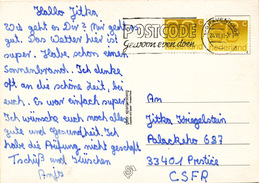 Hallo Jitka,
Wie geht es Dir? Mir geht es
gut. Das Wetter hier ist
super. Habe schon einen
Sonnenbrand. Ich denke
oft an die schöne Zeit, bei
euch. Es war einfach super.
Ich wünsche euch noch alles
Gute und Gesundheit. Ich
habe die Prüfung nicht geschafft
Tschüß und Küsschen
POSTCODE
Gewoon even doen
Nederland
An
Jitka
Palackeho 687
33401 Přeštice
CSFR